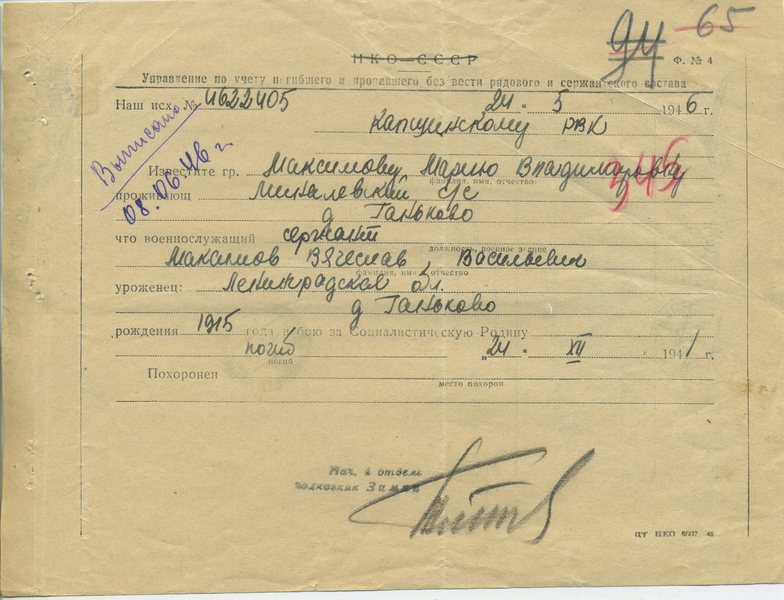 94 - 65
НКО-СССР
Ф. № 4
Управление по учету погибшего и пропавшего без вести рядового и сержантского состава
Наш исх. № 4622405 24. 5 1946 г.
Капшинскому РВК
Выписано
08.06.46 г
Известите гр. Максимову Марию Владимировну
фамилия, имя, отчество
345
проживающ Миналевский с/с
д Ганьково
что военнослужащий сержант
должность, военное звание
Максимов Вячеслав Васильевич
фамилия, имя, отчество
уроженец: Ленинградская обл.
д Ганьково
рождения 1915 года в бою за Социалистическую Родину
погиб 24. XII 1941 г.
погиб
Похоронен
место похорон
Нач. 4 отдел
полковник
ЦТ НКО